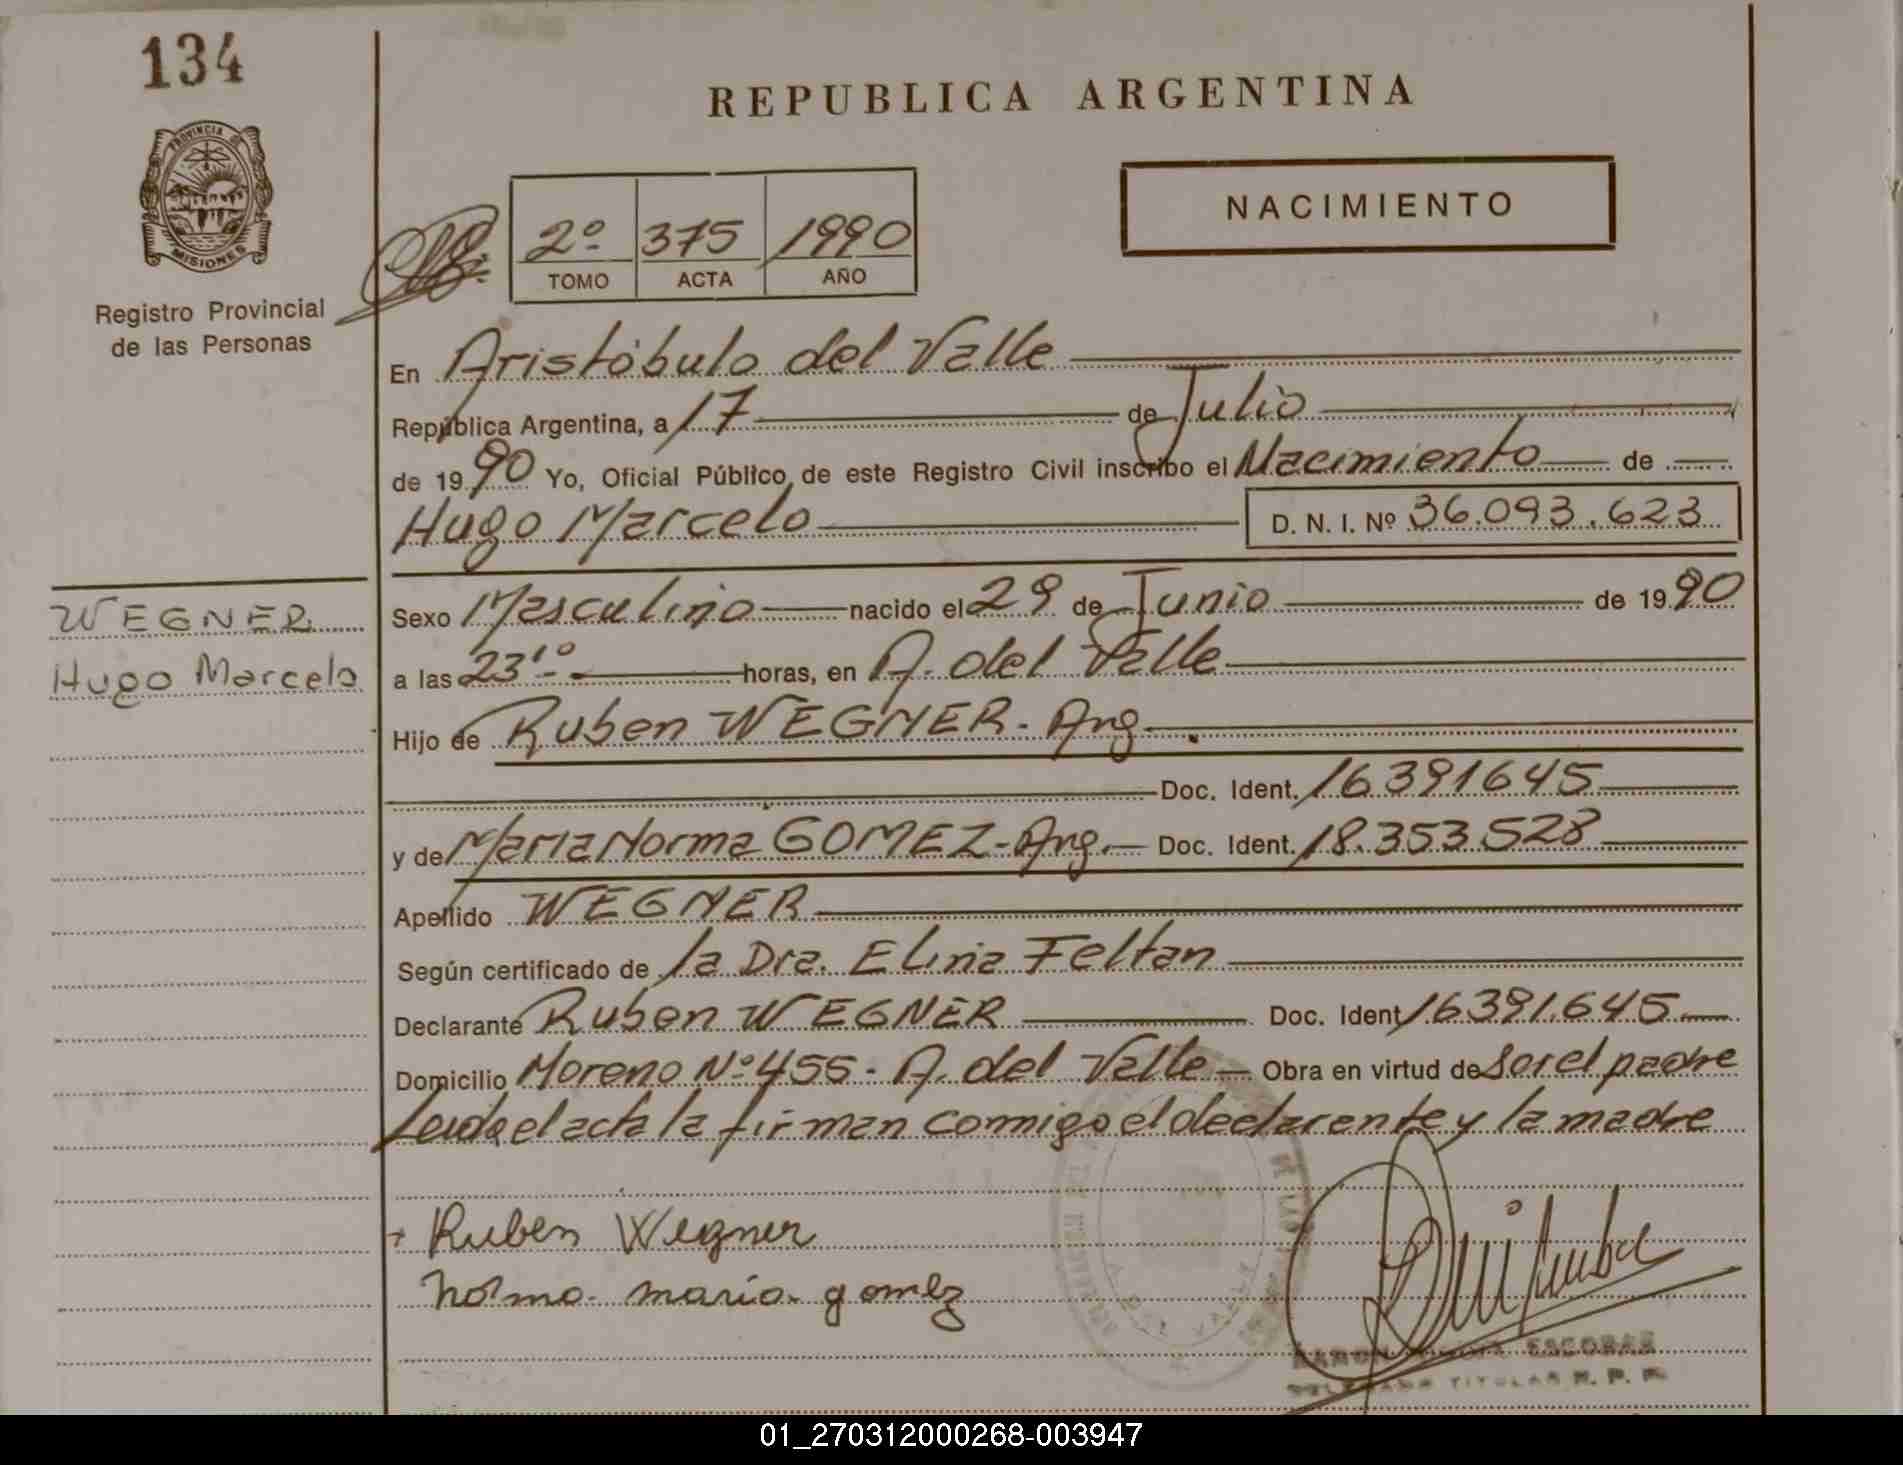 134
REPUBLICA ARGENTINA
PROVINCIA DE
MISIONES
Registro Provincial
de las Personas
2º 375 1990
TOMO ACTA AÑO
NACIMIENTO
En Aristóbulo del Valle
República Argentina, a 17 de Julio
de 1990 Yo, Oficial Público de este Registro Civil inscribo el Nacimiento de
Hugo Marcelo D. N. I. Nº 36.093.623
WEGNER
Hugo Marcelo
Sexo Masculino nacido el 29 de Junio de 1990
a las 23'º horas, en A. del Valle
Hijo de Ruben WEGNER - Arg
Doc. Ident. 16391645
y de Maria Norma GOMEZ - Arg. Doc. Ident. 18.353.528
Apellido WEGNER
Según certificado de la Dra. Elina Feltan
Declarante Ruben WEGNER Doc. Ident 16391.645
Domicilio Moreno Nº 455 - A. del Valle Obra en virtud de ser el padre
Leída el acta la firman conmigo el declarante y la madre
Ruben Wegner
Norma maria gomez
RAMON ESCOBAR
DELEGADO TITULAR R. P. P.
01_270312000268-003947